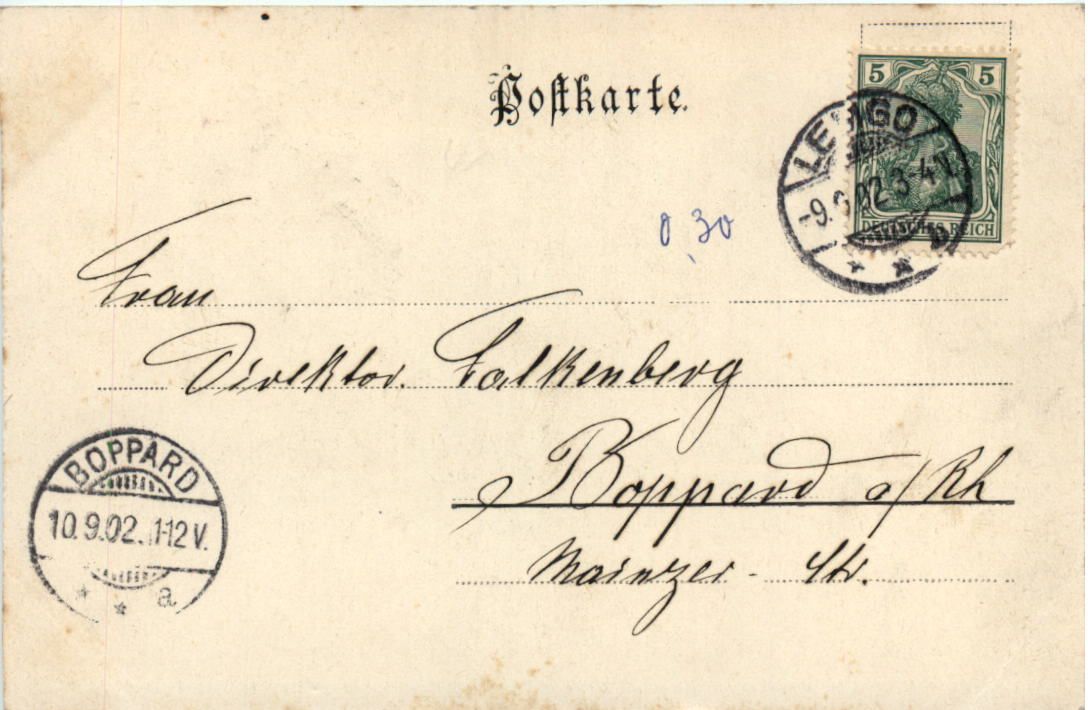 Postkarte.
5 5
DEUTSCHES REICH
LEMGO
-9.9.02 3-4V.
0,30
Frau
Direktor. Falkenberg
Boppard a/Rh
Mainzer- Str.
BOPPARD
10.9.02. 11-12 V.
a